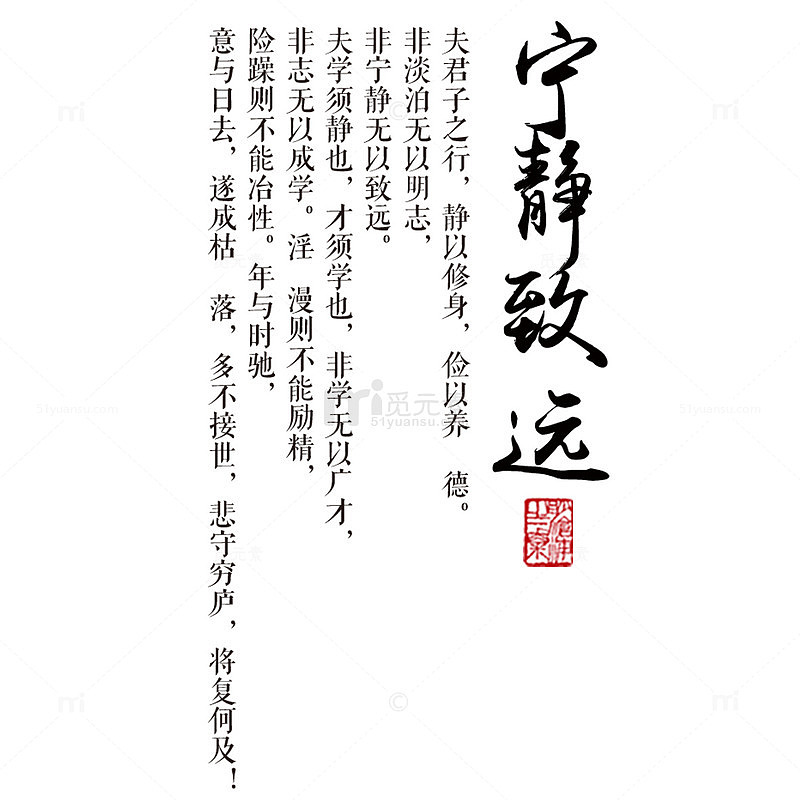 宁静致远
夫君子之行，静以修身，俭以养德。
非淡泊无以明志，
非宁静无以致远。
夫学须静也，才须学也，非学无以广才，
非志无以成学。淫漫则不能励精，
险躁则不能冶性。年与时驰，
意与日去，遂成枯落，多不接世，悲守穷庐，将复何及！
觅元素
51yuansu.com